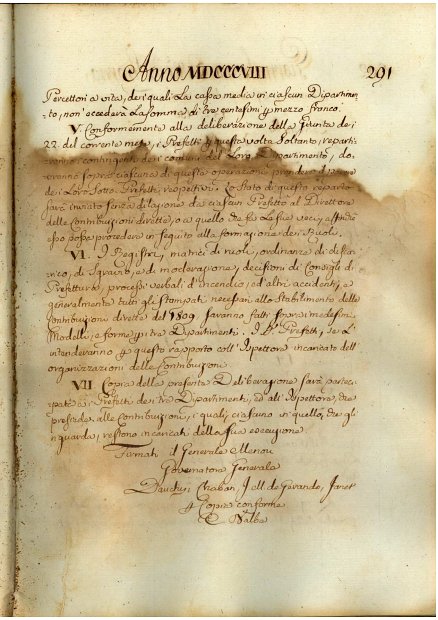 Anno MDCCCVIII
291
Percettori a vita, de i quali La cassa media in ciascun Dipartimen-
to, non eccederà La somma di tre centesimi
V. Conformemente alla deliberazione della Giunta de i
22. del corrente mese, i Prefetti questa volta Soltanto, reparti-
ranno i contingenti de i comuni del Loro Dipartimento, do-
sopra ciascuna di questa operazione
de i Loro Sotto Prefetti respettivi. Lo Stato di questo reparto
sarà inviato senza dilazione da ciascun Prefetto al Direttore
delle contribuzioni dirette, o a quello che fa Le sue veci, affinchè
esso possa procedere in seguito alla formazione de i Ruoli.
VI. I Registri, matrici di ruoli, ordinanze di
di Sgravio, e di moderazione, decisioni di Consiglio di
Prefettura, processi verbali d'incendio, ed altri accidenti, e
generalmente tutti gli Stampati necessari allo Stabilimento delle
Contribuzioni dirette del 1809. saranno fatti sopra i medesimi
Modelli, e forme tre Dipartimenti. I Prefetti, se L'
intenderanno questo rapporto coll'Ispettore incaricato dell'
organizzazione delle Contribuzioni.
VII Copia della presente Deliberazione sarà parteci-
pata a i Prefetti de i tre Dipartimenti, ed all'Ispettore, che
presiede alle Contribuzioni, i quali, ciascuno in quello, che gli
riguarda, restono incaricati della sua esecuzione.
Firmati il Generale Menou
Governatore Generale
Dauchy, Chaban, de Gerando, Janet
Copia conforme
Balbo